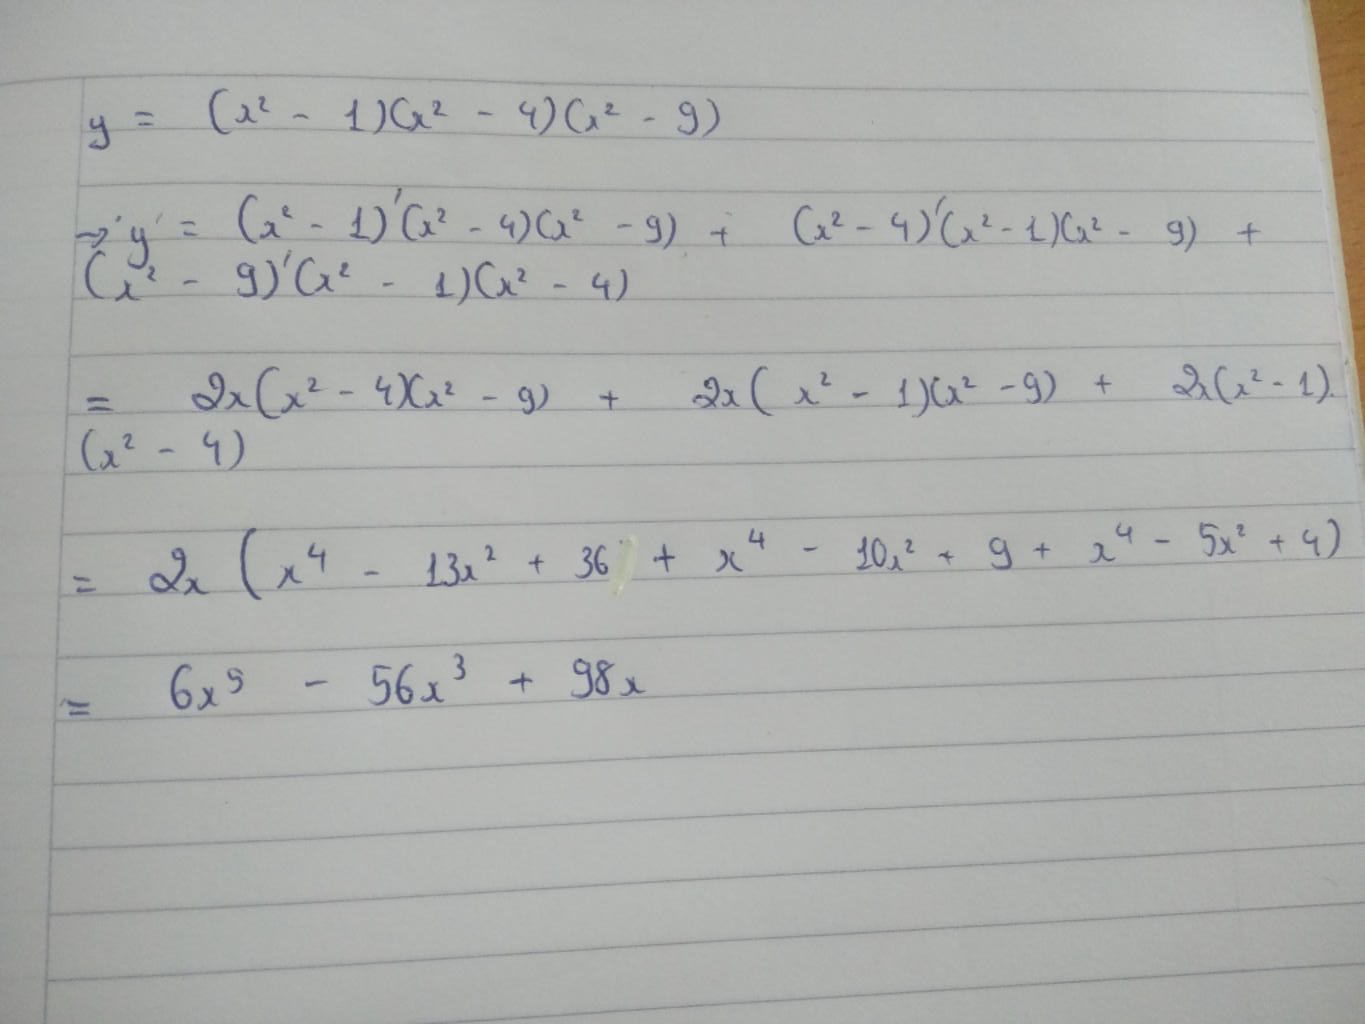 y = (x² - 1)(x² - 4)(x² - 9)
→ y' = (x² - 1)'(x² - 4)(x² - 9) + (x² - 4)'(x² - 1)(x² - 9) +
(x² - 9)'(x² - 1)(x² - 4)
= 2x(x² - 4)(x² - 9) + 2x(x² - 1)(x² - 9) + 2x(x² - 1).
(x² - 4)
= 2x (x⁴ - 13x² + 36 + x⁴ - 10x² + 9 + x⁴ - 5x² + 4)
= 6x⁵ - 56x³ + 98x